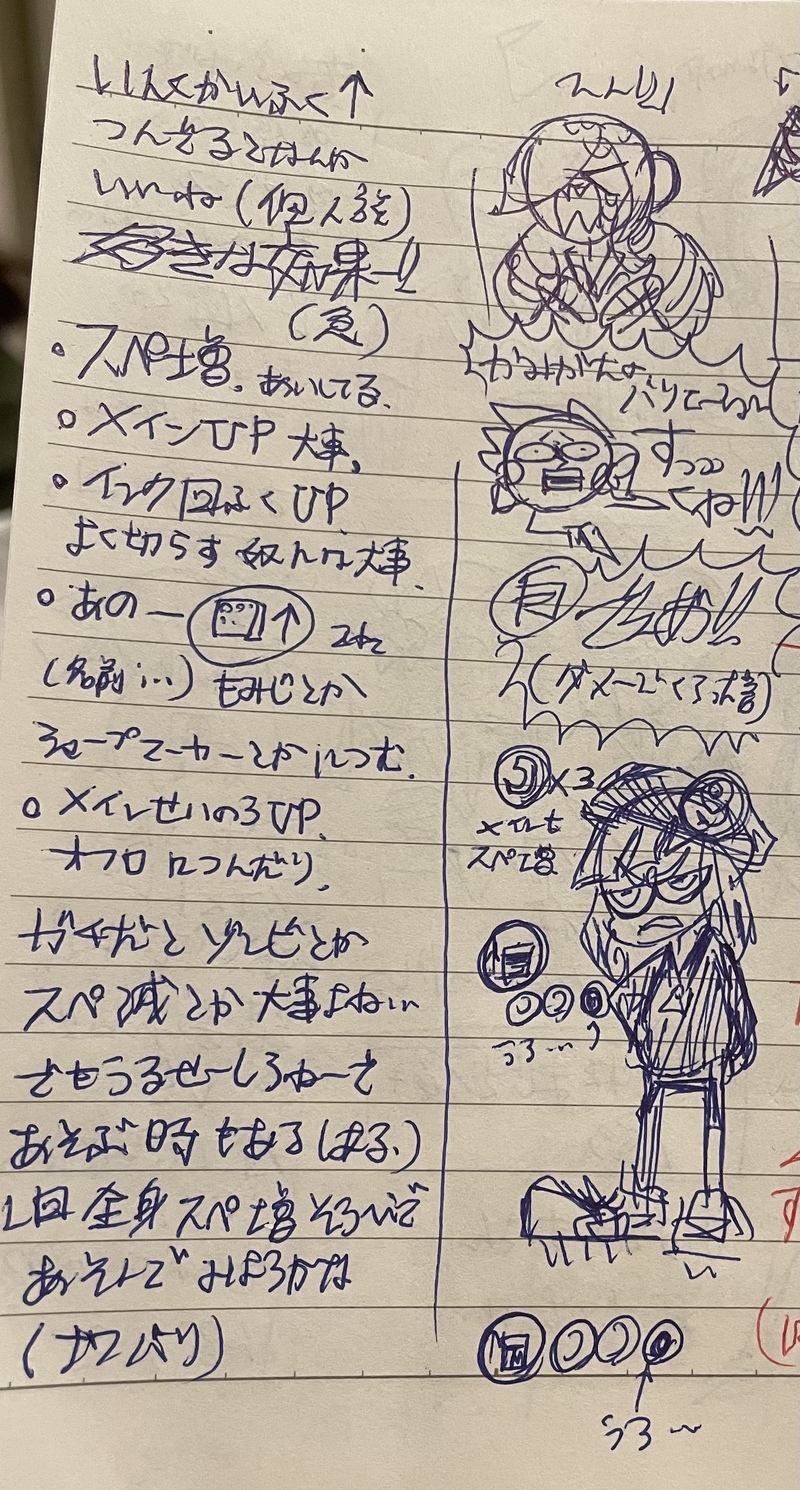 いんくかいふく↑
つんどるとなんか
いいね(個人談)
好きな効果ー!!
(急)
・スペ増。あいしてる。
・メインUP 大事。
・インク回ふくUP
よく切らす奴には大事.
・あの―↑これ
(名前…)もみじとか
シャープマーカーとかにつむ.
・メインせいのうUP.
オフロにつんだり。
ガチだと ゾンビとか
スペ減とか 大事よねい
あそぶ時もある(はる.)
1回 全身スペ増そろいで
あそんでみようかな
かみがたの
バリエーション
すっっっ
くね!!!
(ダメージくう増)
×3
メインも
スペ増
うろ〜
うろ〜